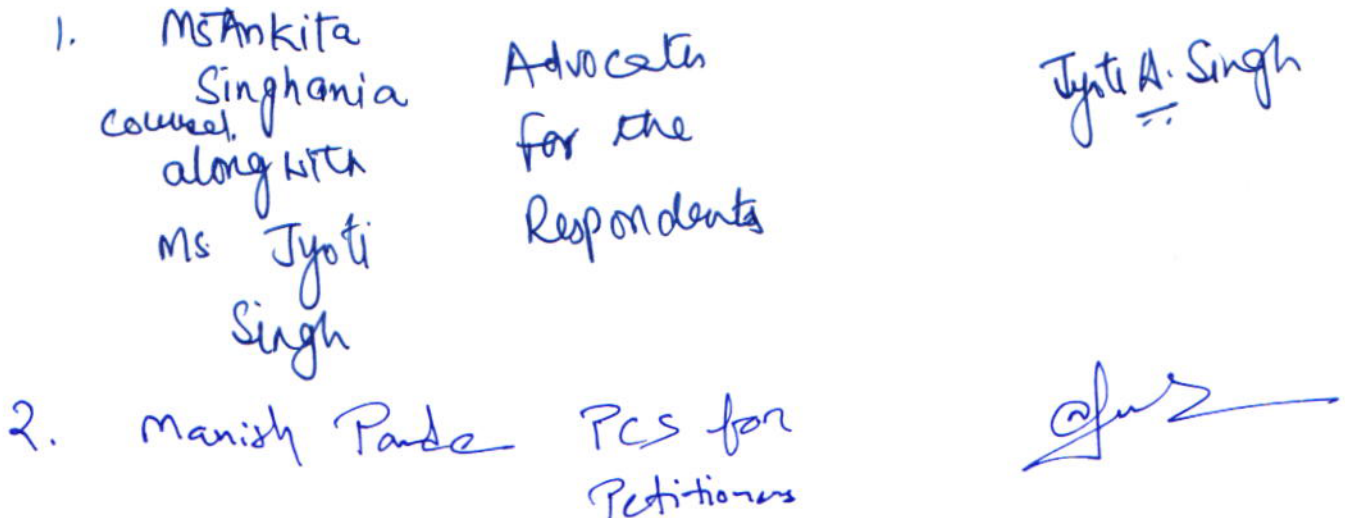 1. Ms Ankita
Singhania
counsel.
along with
Ms Jyoti
Singh
Advocates
for the
Respondents
Jyoti A. Singh
2. Manish Pande
PCS for
Petitioners